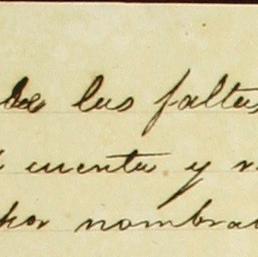 de las faltas
cuenta y
por nombra